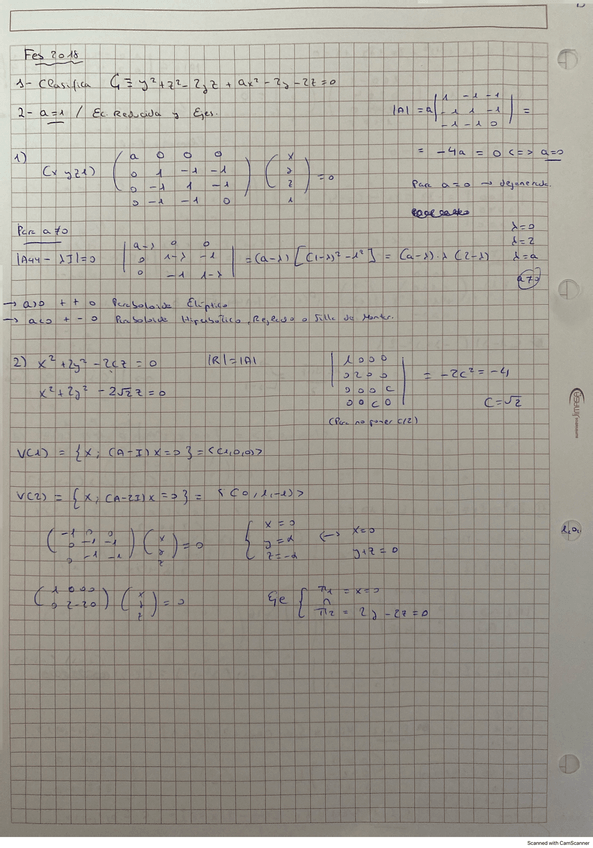 Feb 2018
1- Clasifica G ≡ y² + z² - 2yz + ax² - 2y - 2z = 0
2- a=1 / Ec Reducida y Ejes.
|A| = a | 1 -1 -1 |
| -1 1 -1 | =
| -1 -1 0 |
= -4a = 0 <=> a=0
Para a=0 → degenerada
1)
(x y z 1) ( a 0 0 0 ) ( x )
( 0 1 -1 -1 ) ( y ) = 0
( 0 -1 1 -1 ) ( z )
( 0 -1 -1 0 ) ( 1 )
Para a≠0
|A44 - λI| = 0 | a-λ 0 0 |
| 0 1-λ -1 | = (a-λ) [(1-λ)² - 1²] = (a-λ)·λ (2-λ)
| 0 -1 1-λ |
λ=0
λ=2
λ=a
a≠0
→ a>0 + + 0 Paraboloide Elíptico
→ a<0 + - 0 Paraboloide Hiperbólico, Reglado o Silla de Montar.
2) x² + 2y² - 2cz = 0 |R| = |A|
x² + 2y² - 2√2 z = 0
| 1 0 0 0 |
| 0 2 0 0 | = -2c² = -4
| 0 0 0 c |
| 0 0 c 0 | c = √2
(Para no poner c/2)
V(1) = { x; (A-I) x = 0 } = <(1,0,0)>
V(2) = { x; (A-2I) x = 0 } = <(0,1,-1)>
( -1 0 0 ) ( x )
( 0 -1 -1 ) ( y ) = 0
( 0 -1 -1 ) ( z )
{ x = 0
{ y = α
{ z = -α
<-> x=0
y+z=0
( 1 0 0 0 ) ( x )
( 0 2 -2 0 ) ( y ) = 0
( z )
Eje { π1 = x=0
∩
{ π2 = 2y - 2z = 0
Scanned with CamScanner